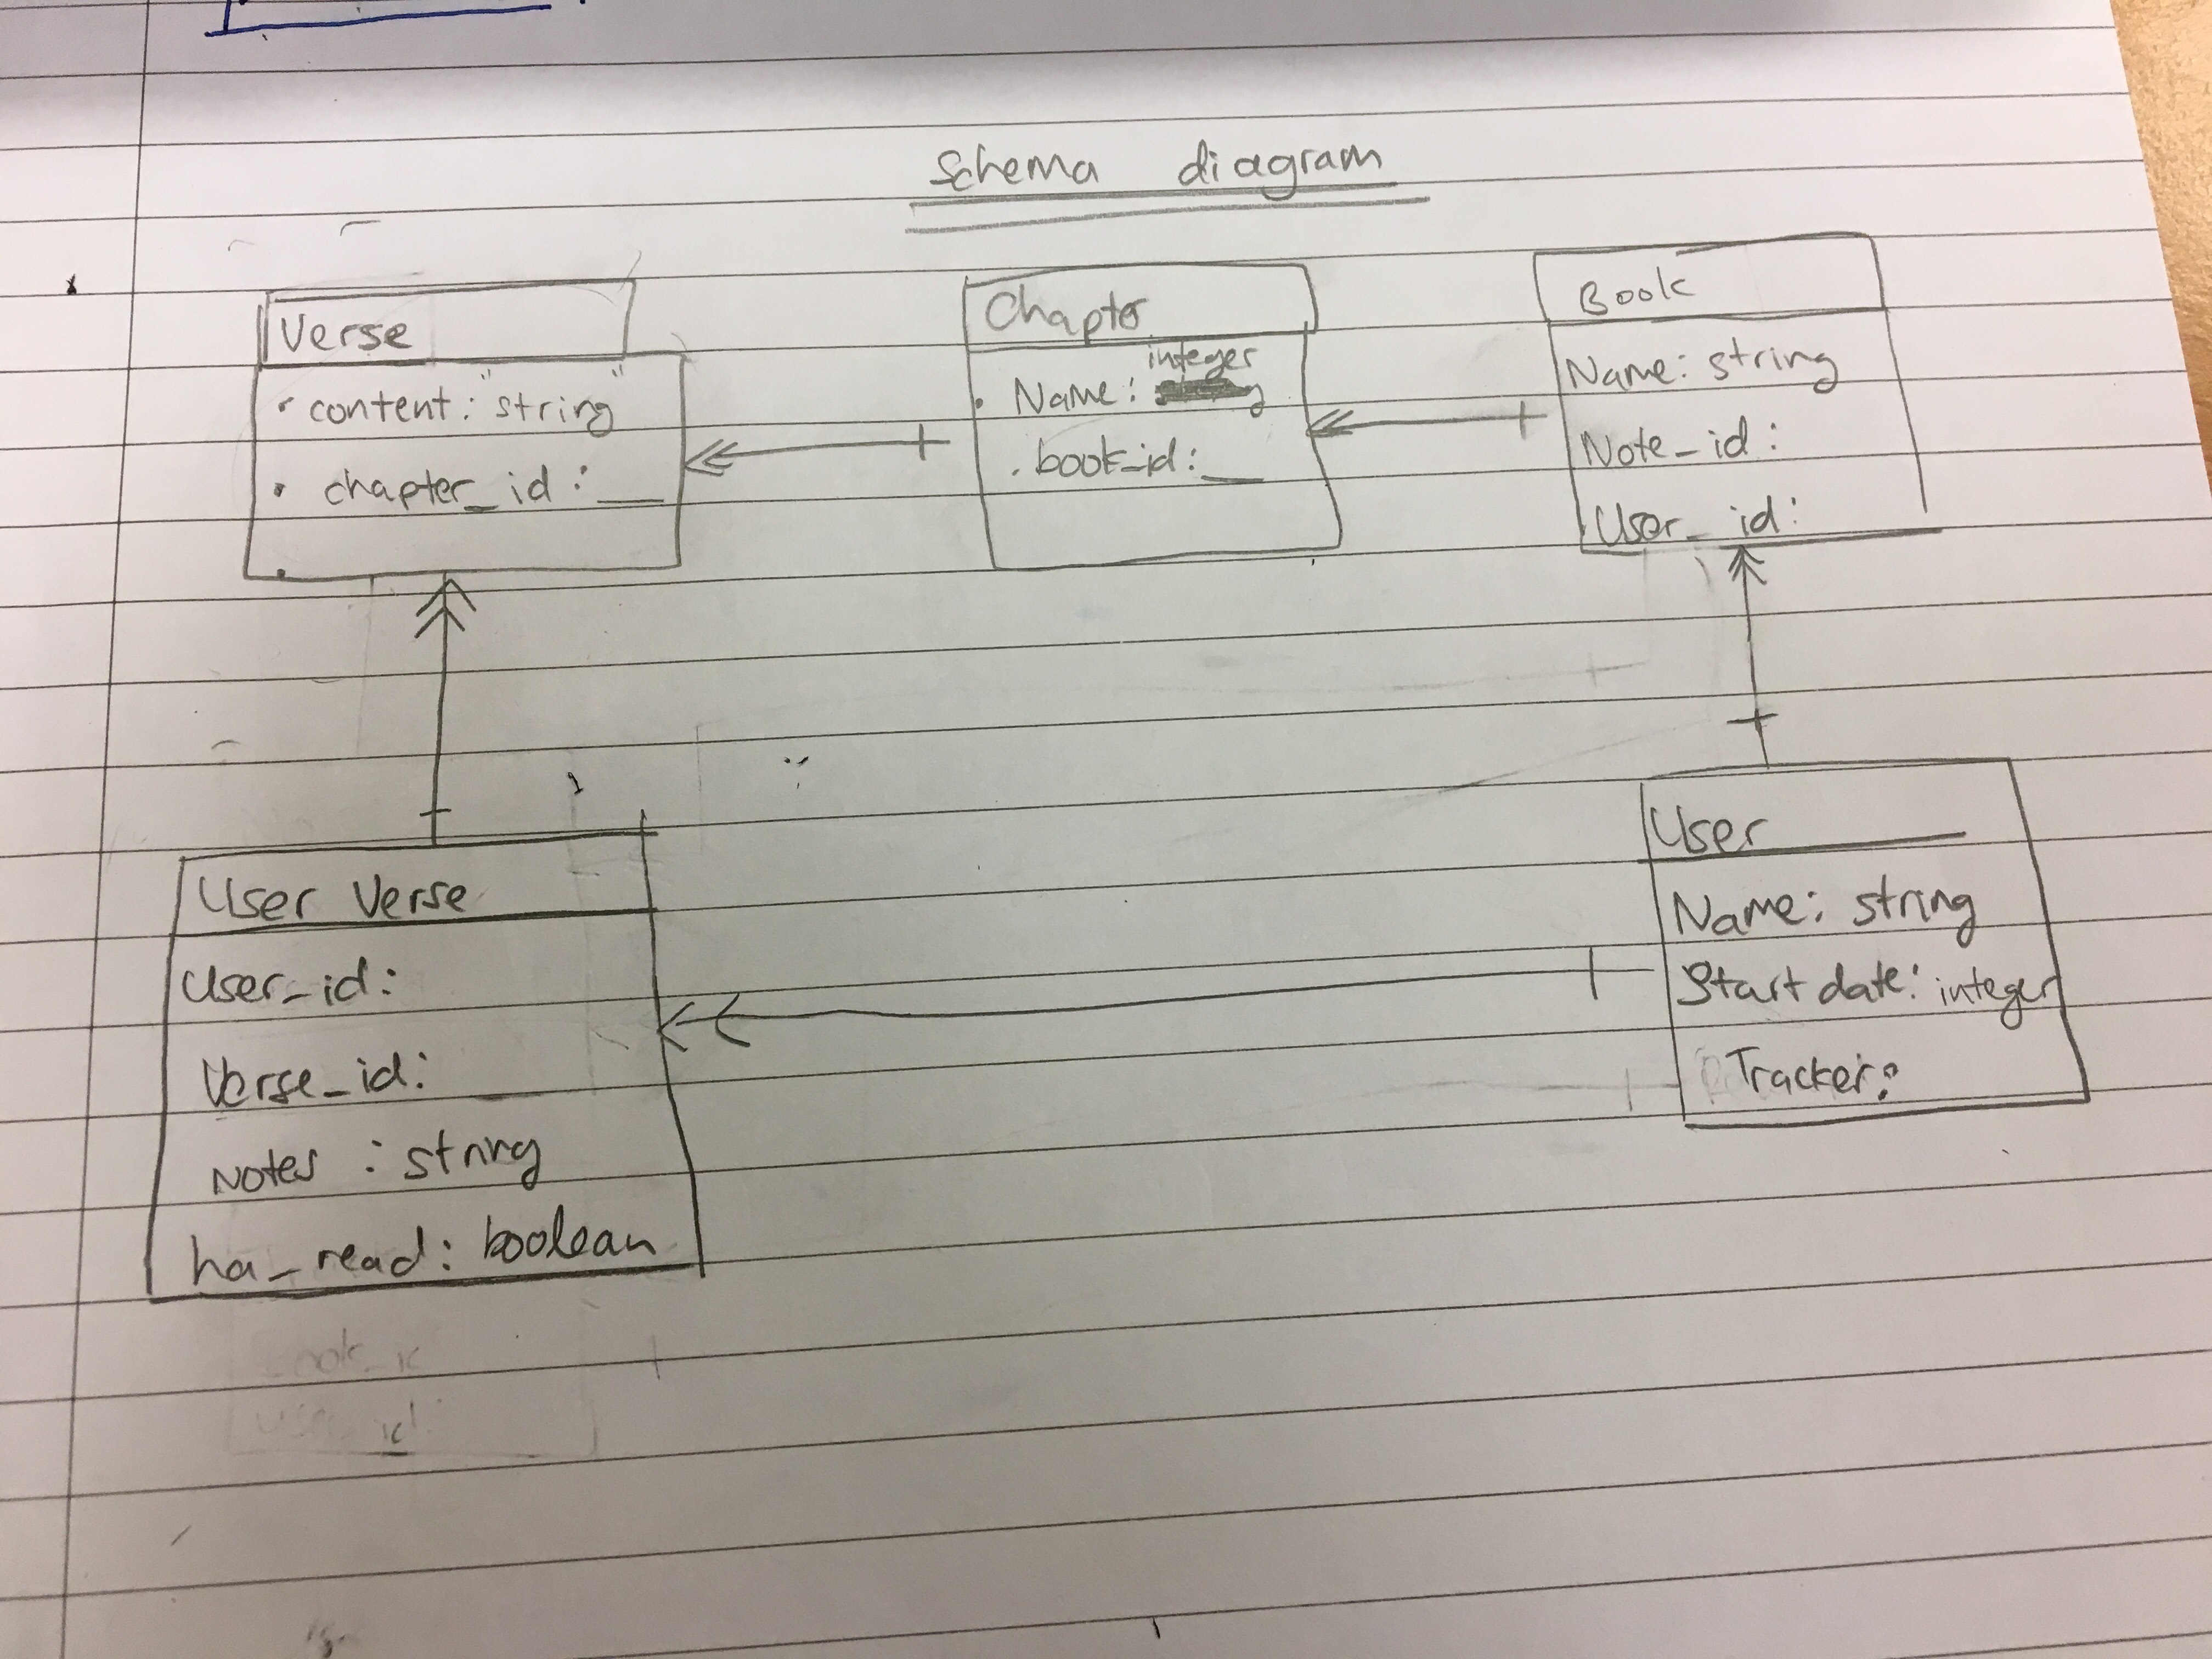 Schema diagram
Verse
• content: "string"
• chapter_id: __
•
Chapter
• Name: integer
. book_id: __
Book
Name: string
Note_id:
User_id:
User Verse
User_id:
Verse_id:
Notes : string
ha_read: boolean
User
Name: string
Start date: integer
Tracker: